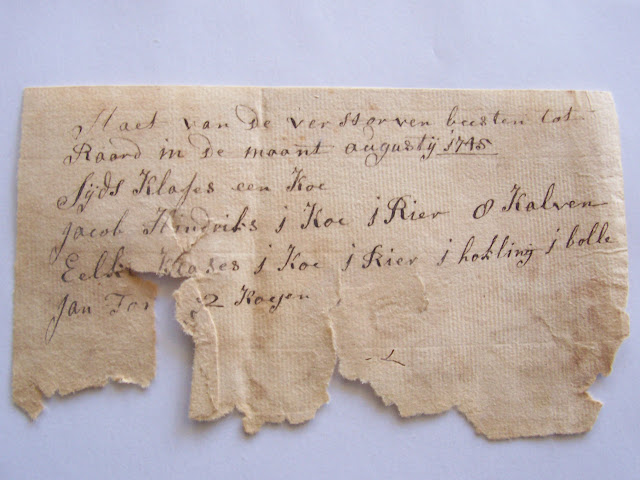 Staet van de verstorven beesten tot
Raard in de maant augustij 1745
Sijds Klases een Koe
Jacob Hindriks j Koe j Rier 8 Kalven
Eelke Klases j Koe j Rier j hokling j bolle
Jan 2 Koejen